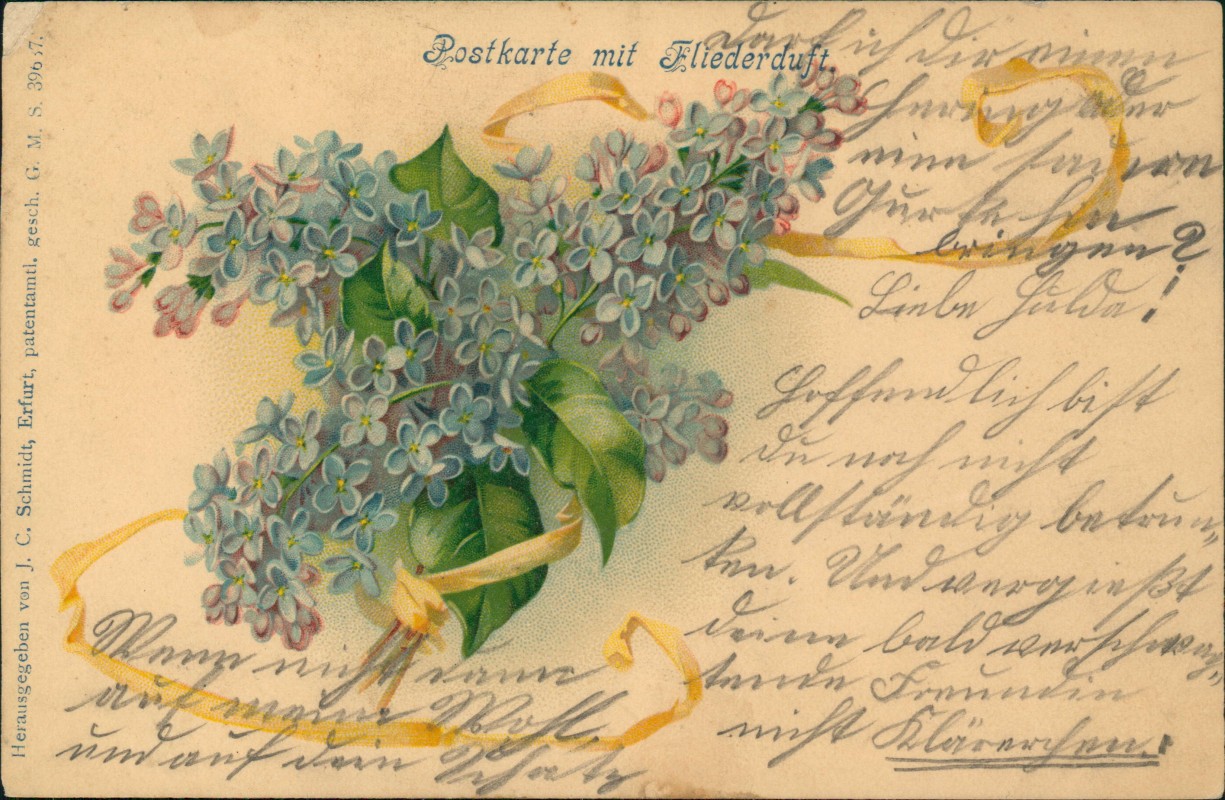 Postkarte mit Fliederduft.
Herausgegeben von J. C. Schmidt, Erfurt, patentamtl. gesch. G. M. S. 39667.
Darf ich dir einen
Hering oder
eine sauern
Gurke hin
bringen?
Liebe Hulda!
Hoffendlich bist
du noch nicht
vollständig betrun„
ken. Und vergießt
deine bald verschmach„
tende Freundin
nicht Klärerchen.!
Wenn nicht dann
auf mein Wohl.
und auf dein Schatz